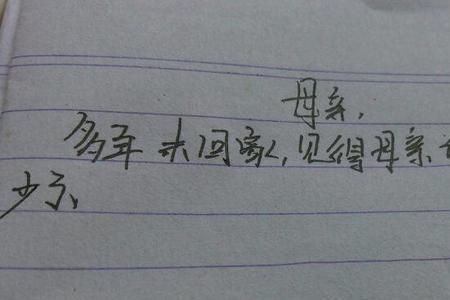 母亲,
多年未回家,见得母亲
少